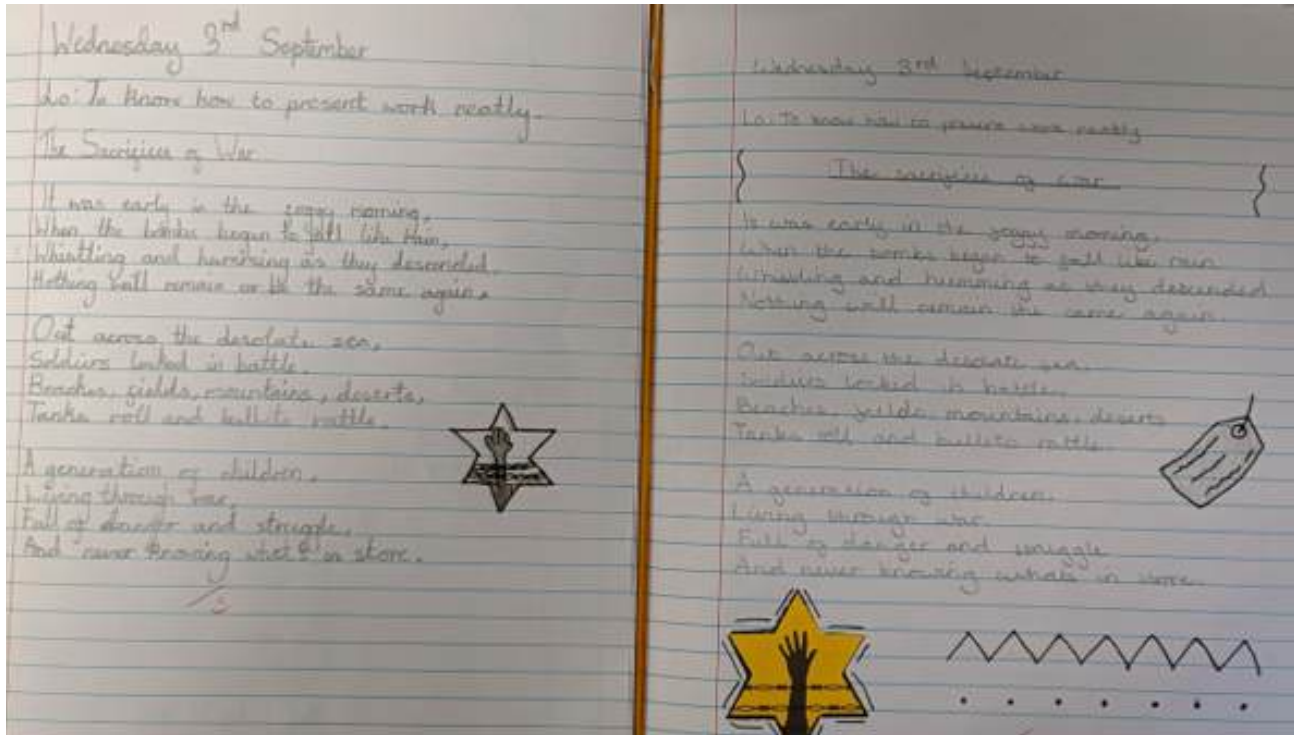 Wednesday 3rd September
Lo: To know how to present work neatly.
The Sacrifices of War
It was early in the foggy morning,
When the bombs began to fall like rain,
Whistling and humming as they descended.
Nothing will remain or be the same again.
Out across the desolate sea,
Soldiers locked in battle.
Beaches, fields, mountains, deserts,
Tanks roll and bullets rattle.
A generation of children,
Living through war,
Full of danger and struggle,
And never knowing what's in store.
Wednesday 3rd September
Lo: To know how to present work neatly
The sacrifices of war
It was early in the foggy morning,
When the bombs began to fall like rain
Whistling and humming as they descended
Nothing will remain the same again.
Out across the desolate sea.
Soldiers locked in battle.
Beaches, feilds, mountains, deserts
Tanks roll and bullets rattle.
A generation of children.
Living through war.
Full of danger and struggle
And never knowing whats in store.